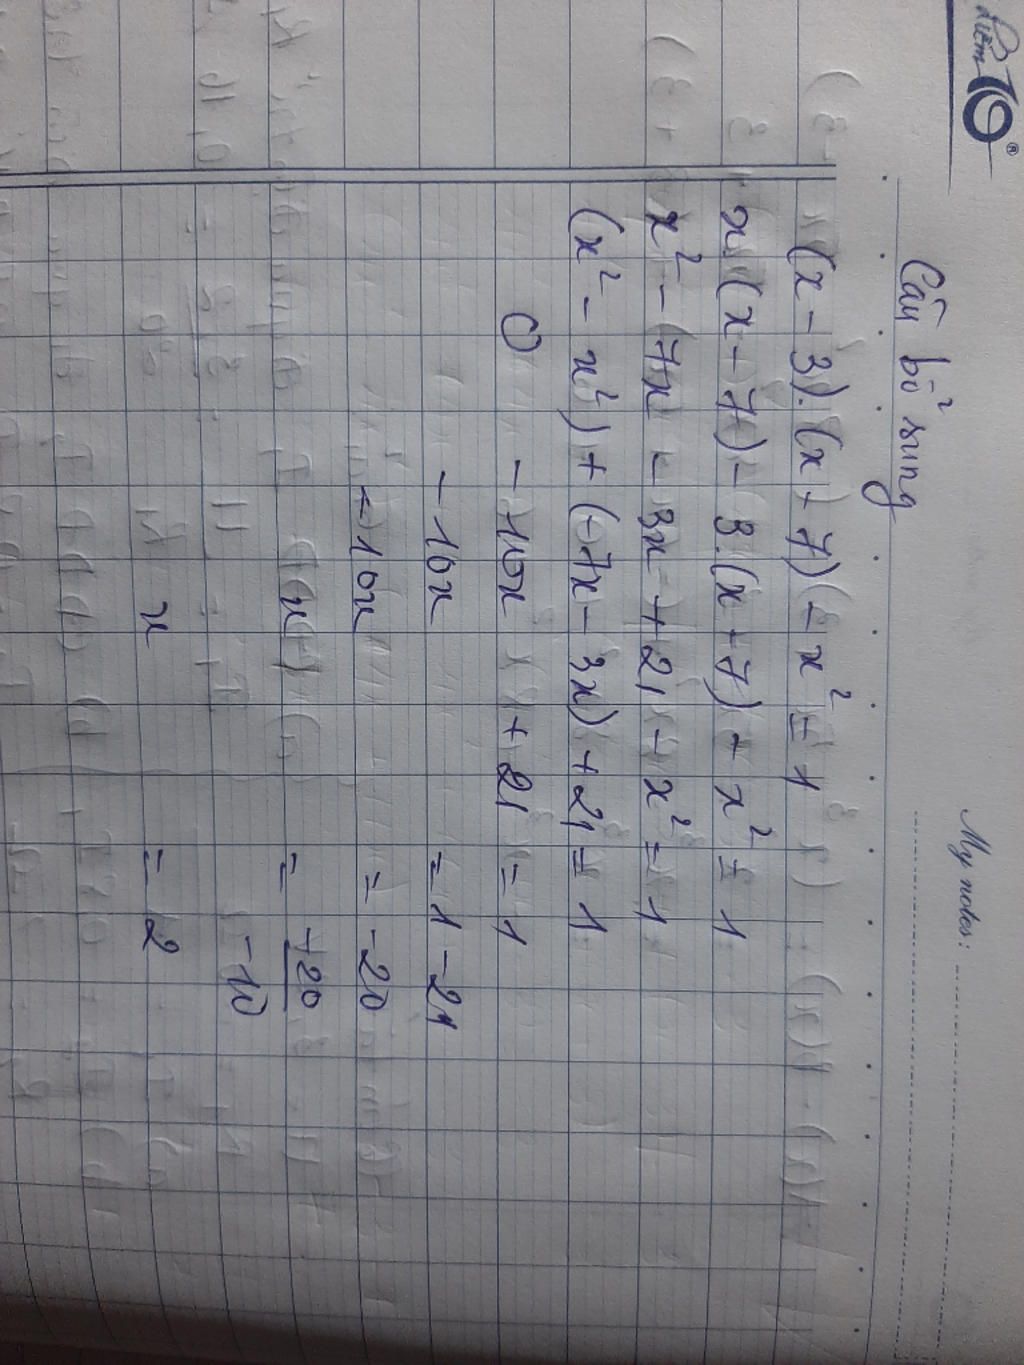 Liêm
My notes:
Câu bổ sung
(x - 3).(x + 7) - x² = 1
x.(x - 7) - 3.(x + 7) - x² = 1
x² - 7x - 3x + 21 - x² = 1
(x² - x²) + (-7x - 3x) + 21 = 1
0 - 10x + 21 = 1
- 10x = 1 - 21
- 10x = -20
x = +20
-10
x = 2